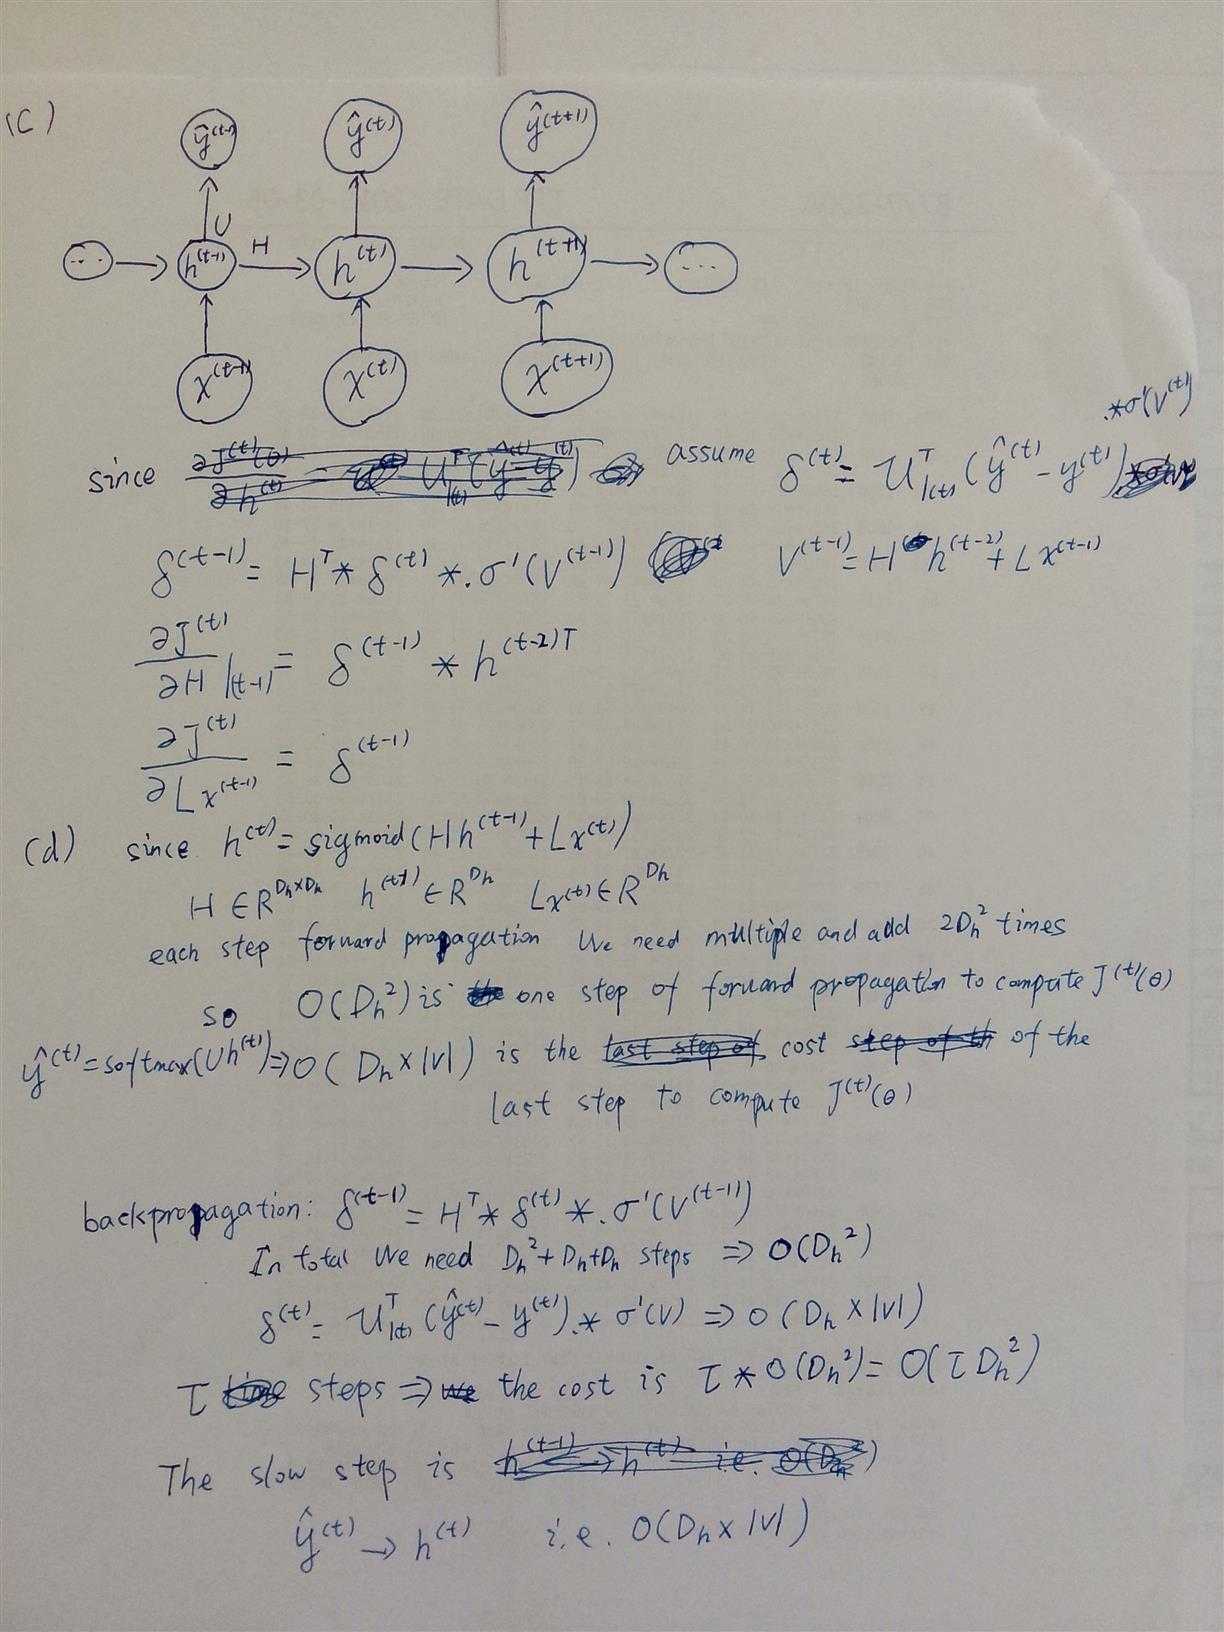 (C)
ŷ^(t-1) ŷ^(t) ŷ^(t+1)
U
... h^(t-1) H h^(t) h^(t+1) ...
x^(t-1) x^(t) x^(t+1)
.*σ'(V^(t))
since assume δ^(t) = U^T|(t) (ŷ^(t) - y^(t))
δ^(t-1) = H^T * δ^(t) *. σ'(V^(t-1)) V^(t-1) = H h^(t-2) + Lx^(t-1)
∂J^(t)/∂H |(t-1) = δ^(t-1) * h^(t-2)T
∂J^(t)/∂Lx^(t-1) = δ^(t-1)
(d) since h^(t) = sigmoid(Hh^(t-1) + Lx^(t))
H ∈ R^Dh×Dh h^(t-1) ∈ R^Dh Lx^(t) ∈ R^Dh
each step forward propagation We need multiple and add 2Dh² times
so O(Dh²) is one step of forward propagation to compute J^(t)(θ)
ŷ^(t) = softmax(Uh^(t)) ⇒ O(Dh × |V|) is the cost of the
last step to compute J^(t)(θ)
backpropagation: δ^(t-1) = H^T * δ^(t) *. σ'(V^(t-1))
In total We need Dh² + Dh + Dh steps ⇒ O(Dh²)
δ^(t) = U^T|(t) (ŷ^(t) - y^(t)) .* σ'(V) ⇒ O(Dh × |V|)
τ steps ⇒ the cost is τ * O(Dh²) = O(τDh²)
The slow step is
ŷ^(t) → h^(t) i.e. O(Dh × |V|)